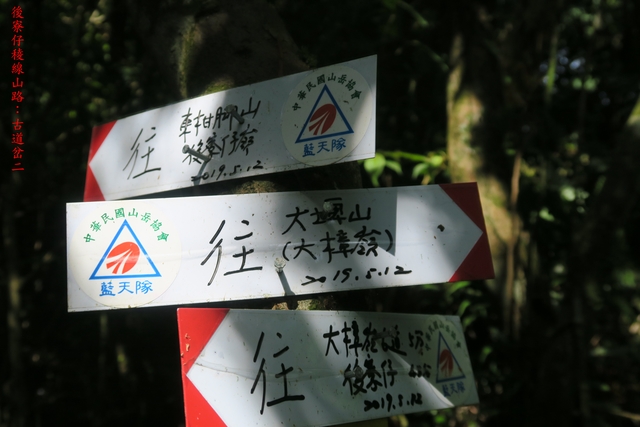 後寮仔稜線山路:古道岔二
往
車柑腳山
後寮仔嶺
2019.5.12
中華民國山岳協會
藍天隊
中華民國山岳協會
藍天隊
往
大埤山
(大樟嶺)
2019.5.12
往
大樟嶺古道
後寮仔
2019.5.12
藍天隊